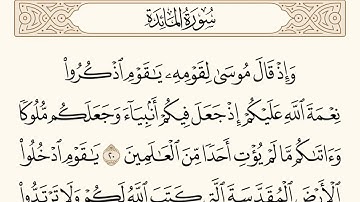 سُورَةُ المَائِدَةِ
وَإِذْ قَالَ مُوسَىٰ لِقَوْمِهِۦ يَٰقَوْمِ ٱذْكُرُوا۟
نِعْمَةَ ٱللَّهِ عَلَيْكُمْ إِذْ جَعَلَ فِيكُمْ أَنۢبِيَآءَ وَجَعَلَكُم مُّلُوكًا
وَءَاتَىٰكُم مَّا لَمْ يُؤْتِ أَحَدًا مِّنَ ٱلْعَٰلَمِينَ ٢٠ يَٰقَوْمِ ٱدْخُلُوا۟
ٱلْأَرْضَ ٱلْمُقَدَّسَةَ ٱلَّتِى كَتَبَ ٱللَّهُ لَكُمْ وَلَا تَرْتَدُّوا۟